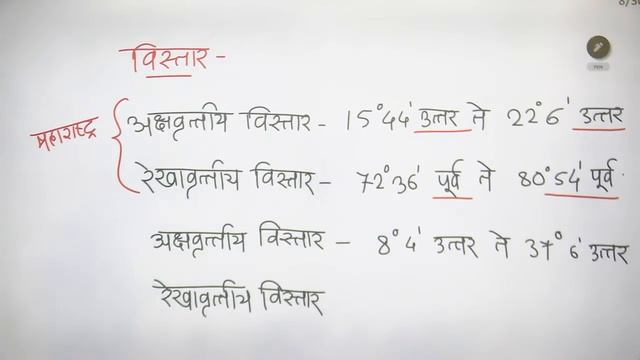 विस्तार -
महाराष्ट्र
अक्षवृत्तीय विस्तार - 15°44' उत्तर ते 22°6' उत्तर
रेखावृत्तीय विस्तार - 72°36' पूर्व ते 80°54' पूर्व
अक्षवृत्तीय विस्तार - 8°4' उत्तर ते 37°6' उत्तर
रेखावृत्तीय विस्तार